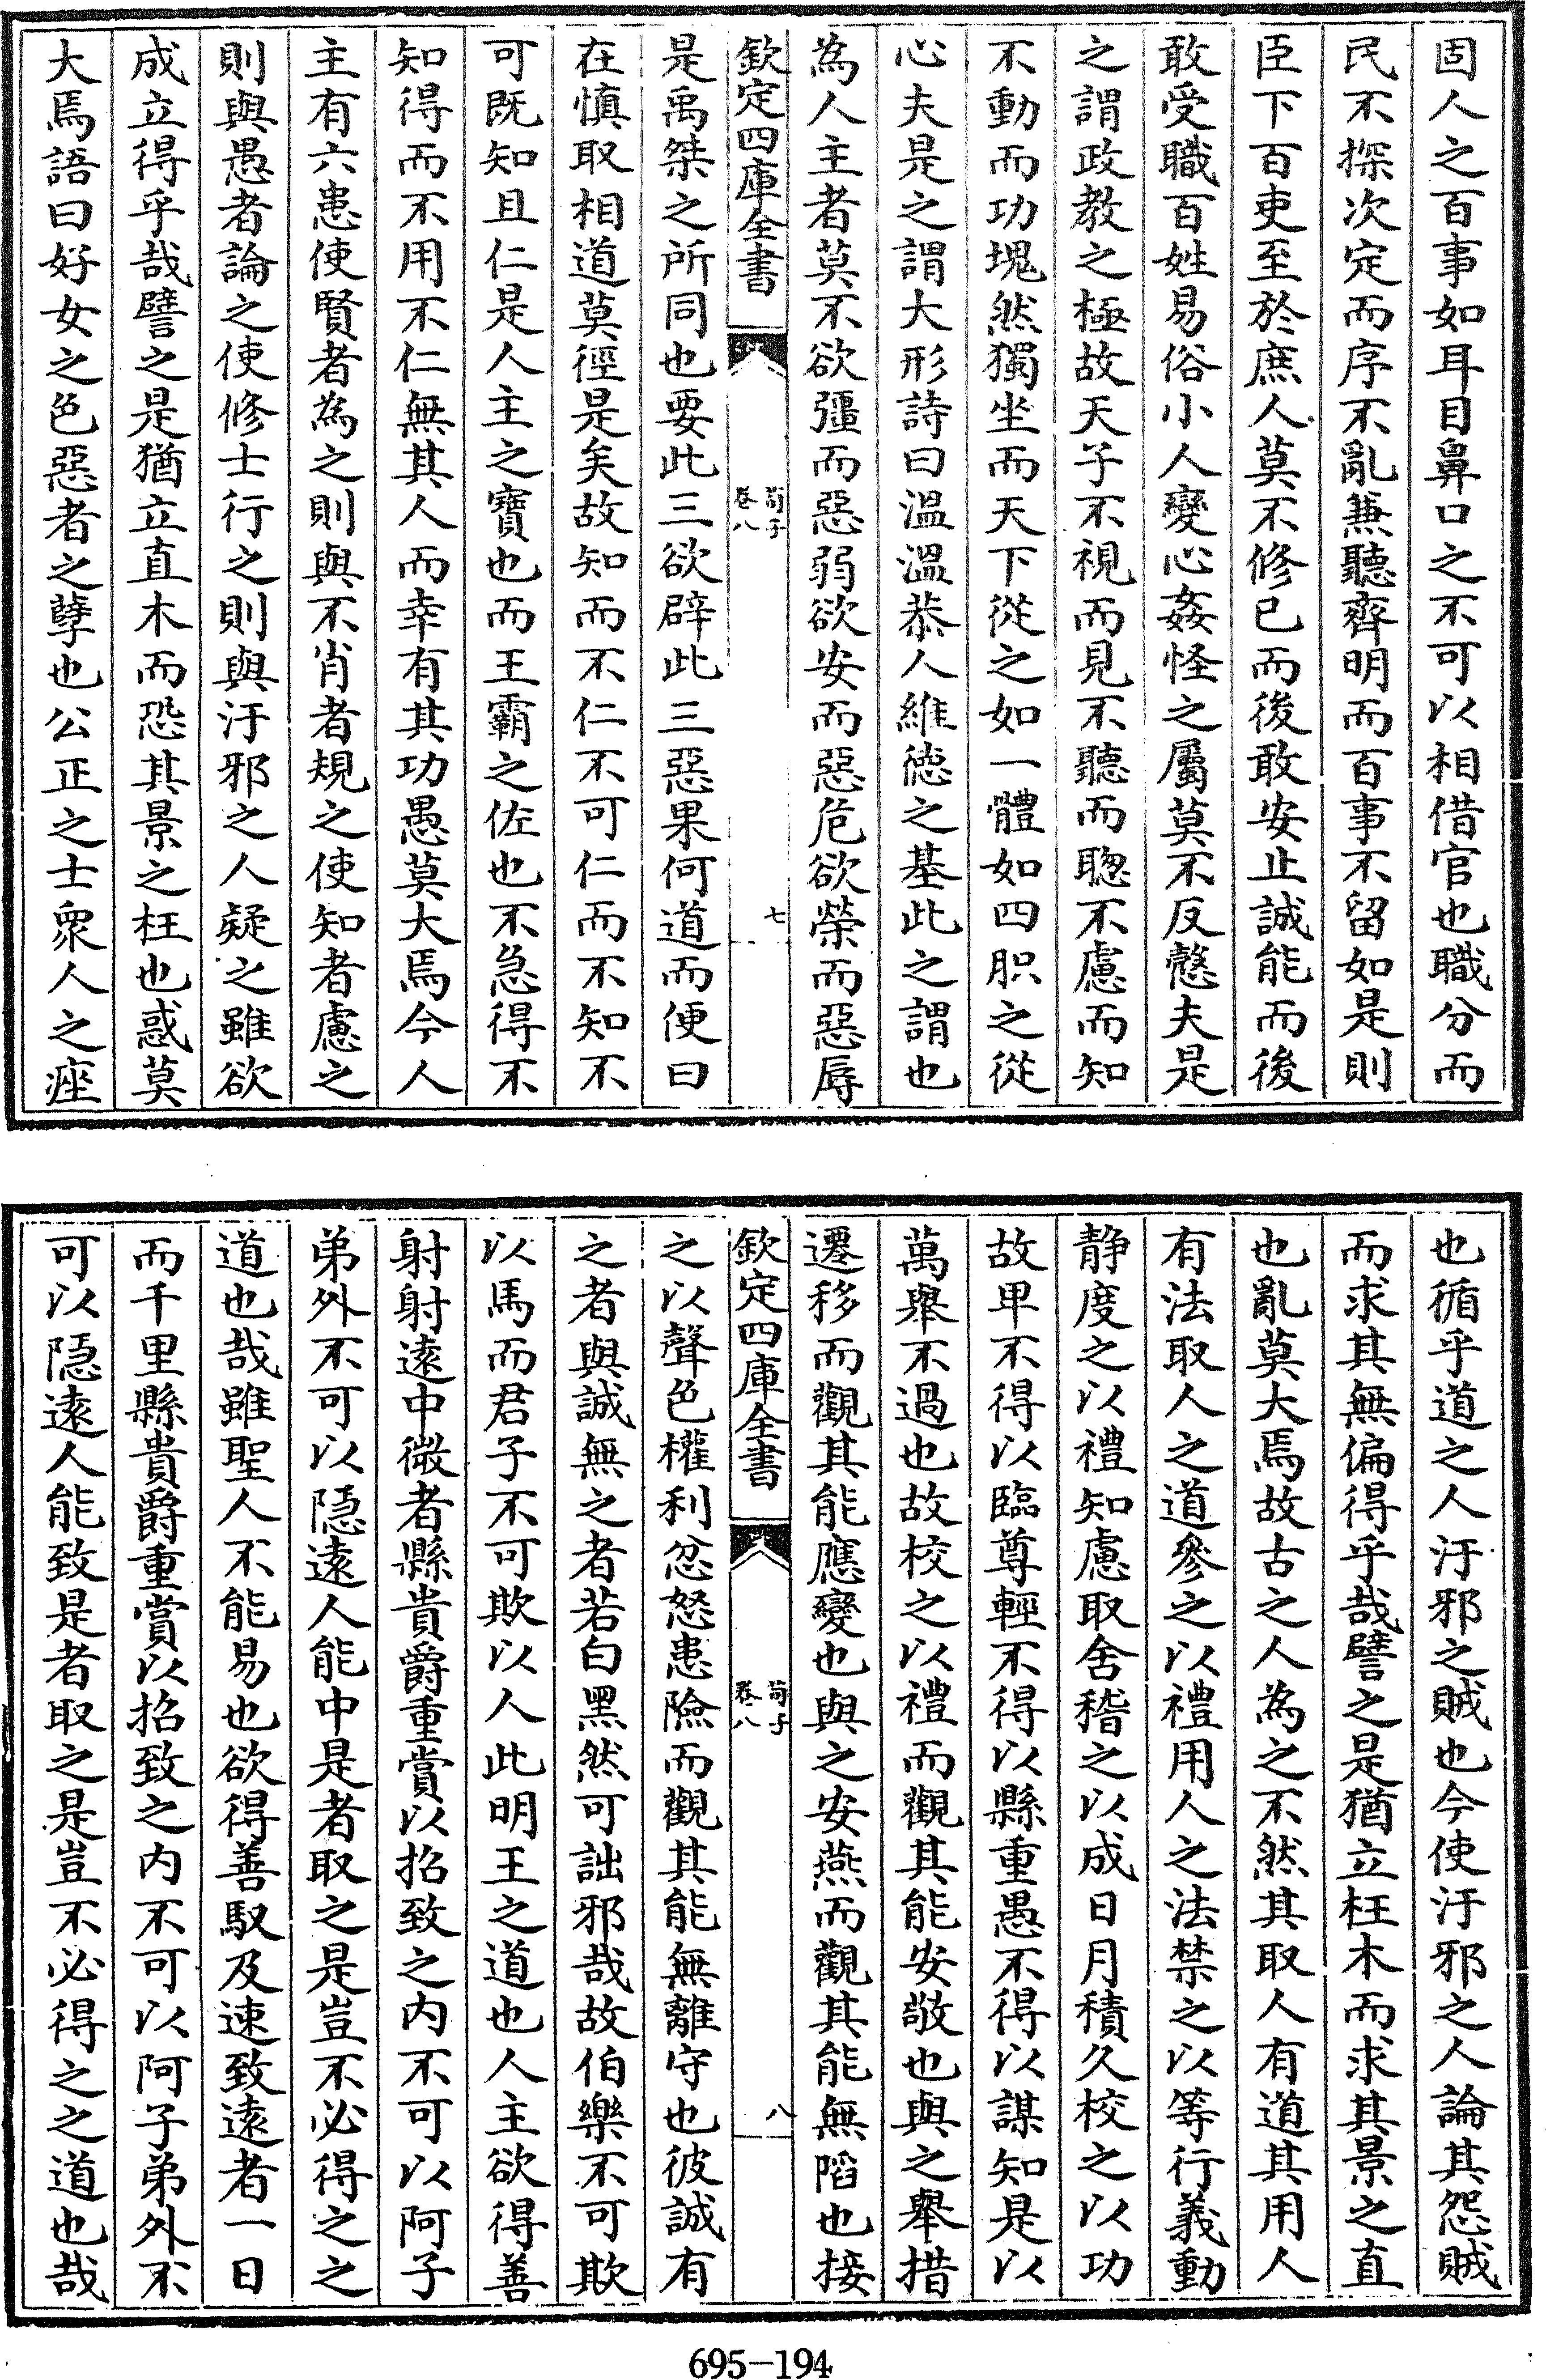 固人之百事如耳目鼻口之不可以相借官也職分而
民不探次定而序不亂兼聽齊明而百事不留如是則
臣下百吏至於庶人莫不修已而後敢安止誠能而後
敢受職百姓易俗小人變心姦怪之屬莫不反慤夫是
之謂政教之極故天子不視而見不聽而聰不慮而知
不動而功塊然獨坐而天下從之如一體如四胑之從
心夫是之謂大形詩曰溫溫恭人維德之基此之謂也
為人主者莫不欲彊而惡弱欲安而惡危欲榮而惡辱
欽定四庫全書
荀子
卷八
七
是禹桀之所同也要此三欲辟此三惡果何道而便曰
在慎取相道莫徑是矣故知而不仁不可仁而不知不
可既知且仁是人主之寶也而王霸之佐也不急得不
知得而不用不仁無其人而幸有其功愚莫大焉今人
主有六患使賢者為之則與不肖者規之使知者慮之
則與愚者論之使修士行之則與汙邪之人疑之雖欲
成立得乎哉譬之是猶立直木而恐其景之枉也惑莫
大焉語曰好女之色惡者之孽也公正之士衆人之痤
也循乎道之人汙邪之賊也今使汙邪之人論其怨賊
而求其無偏得乎哉譬之是猶立枉木而求其景之直
也亂莫大焉故古之人為之不然其取人有道其用人
有法取人之道參之以禮用人之法禁之以等行義動
靜度之以禮知慮取舍稽之以成日月積久校之以功
故卑不得以臨尊輕不得以縣重愚不得以謀知是以
萬舉不過也故校之以禮而觀其能安敬也與之舉措
遷移而觀其能應變也與之安燕而觀其能無陷也接
欽定四庫全書
荀子
卷八
八
之以聲色權利忿怒患險而觀其能無離守也彼誠有
之者與誠無之者若白黑然可詘邪哉故伯樂不可欺
以馬而君子不可欺以人此明王之道也人主欲得善
射射遠中微者縣貴爵重賞以招致之内不可以阿子
弟外不可以隱遠人能中是者取之是豈不必得之之
道也哉雖聖人不能易也欲得善馭及速致遠者一日
而千里縣貴爵重賞以招致之内不可以阿子弟外不
可以隱遠人能致是者取之是豈不必得之之道也哉
695-194